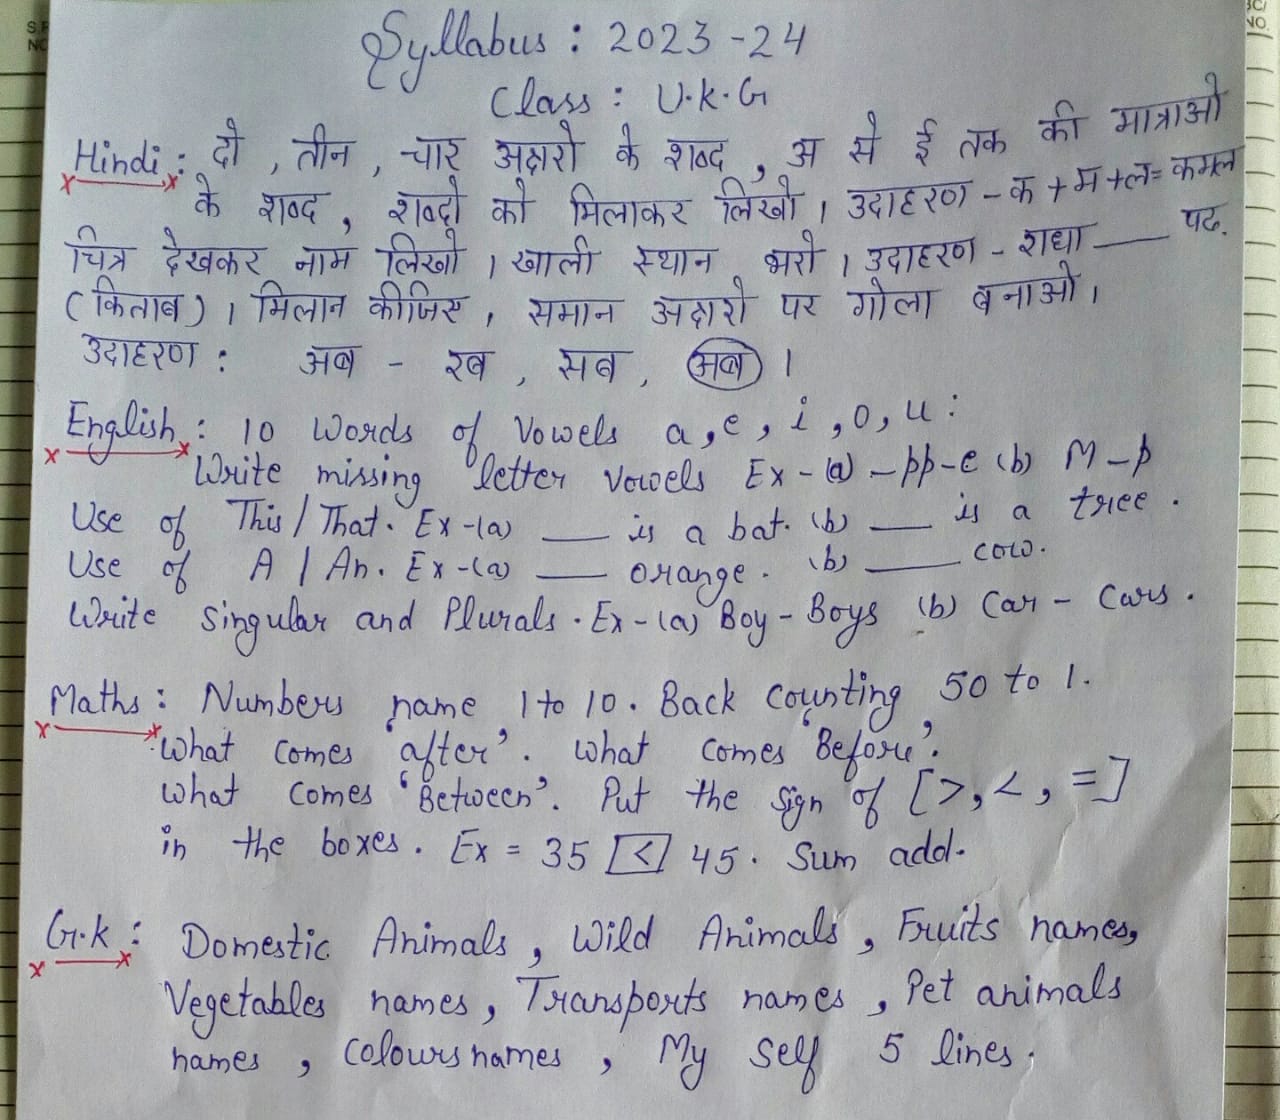 Syllabus : 2023-24
Class : U.K.G
Hindi : दो , तीन , चार अक्षरो के शब्द , अ से ई तक की मात्राओ
के शब्द , शब्दो को मिलाकर लिखो । उदाहरण - क + म + ल = कमल
चित्र देखकर नाम लिखो । खाली स्थान भरो । उदाहरण - राधा ___ पढ.
(किताब) । मिलान कीजिए , समान अक्षरो पर गोला बनाओ ।
उदाहरण : अब - रब , सब , अब ।
English : 10 Words of Vowels a , e , i , o , u :
Write missing letter vowels Ex - (a) -pp-e (b) M-p
Use of This / That. Ex -(a) ___ is a bat. (b) ___ is a tree .
Use of A / An. Ex -(a) ___ orange. (b) ___ cow.
Write Singular and Plurals . Ex - (a) Boy - Boys (b) Car - Cars .
Maths : Numbers name 1 to 10 . Back Counting 50 to 1.
What comes 'after' . What comes 'Before' .
What comes 'Between' . Put the sign of [>, <, =]
in the boxes . Ex = 35 [<] 45 . Sum add.
G.K : Domestic Animals , Wild Animals , Fruits names,
Vegetables names , Transports names , Pet animals
names , Colours names , My Self 5 lines .
S.
NO
NO.